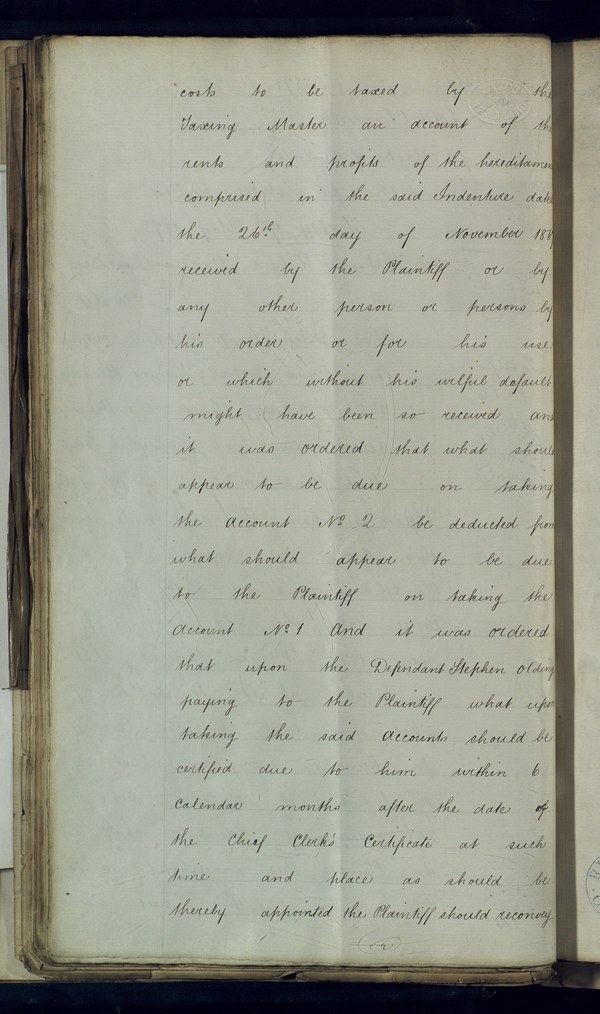 costs to be taxed by the
Taxing Master an account of the
rents and profits of the hereditamen
comprised in the said Indenture date
the 26th day of November 188
received by the Plaintiff or by
any other person or persons by
his order or for his use
or which without his wilful dafault
might have been so received and
it was ordered that what should
appear to be due on taking
the account No 2 be deducted from
what should appear to be due
to the Plaintiff on taking the
account No 1 And it was ordered
that upon the Defendant Stephen Olding
paying to the Plaintiff what upon
taking the said accounts should be
certified due to him within 6
calendar months after the date of
the Chief Clerk's Certificate at such
time and place as should be
thereby appointed the Plaintiff should reconvey